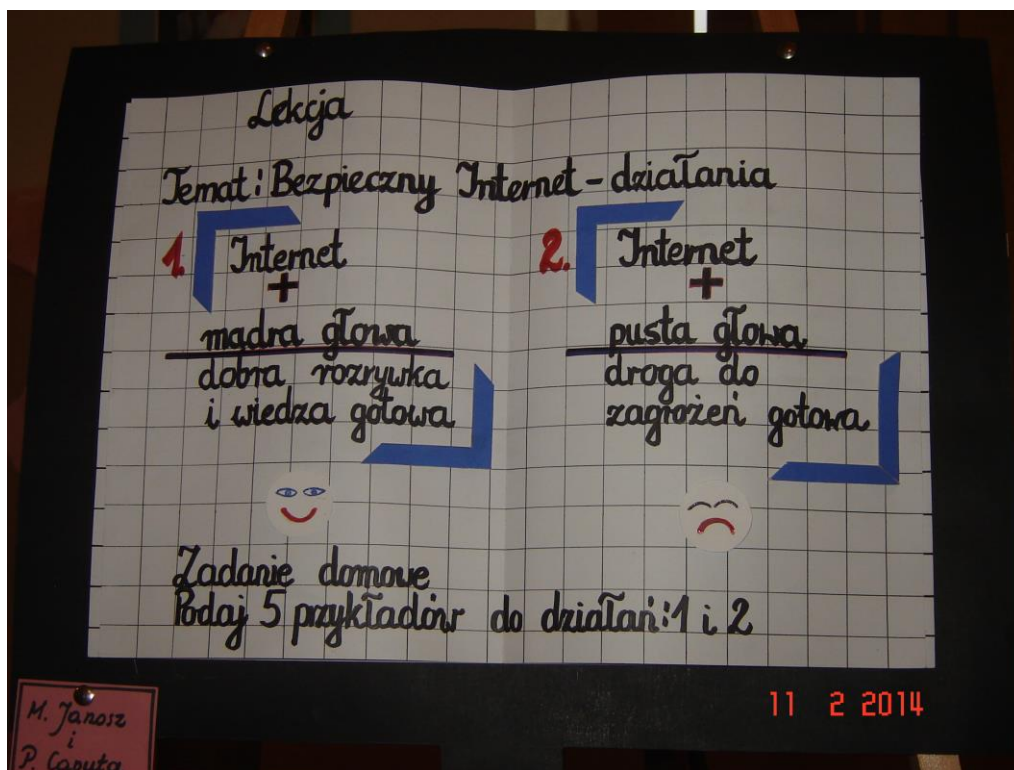 Lekcja
Temat: Bezpieczny Internet - działania
1. Internet
+
mądra głowa
dobra rozrywka
i wiedza gotowa
2. Internet
+
pusta głowa
droga do
zagrożeń gotowa
Zadanie domowe
Podaj 5 przykładów do działań: 1 i 2
11 2 2014
M. Janosz
i
P. Caputa